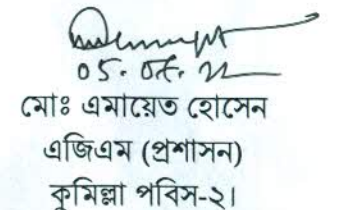 05.04.22
মোঃ এমায়েত হোসেন
এজিএম (প্রশাসন)
কুমিল্লা পবিস-২।